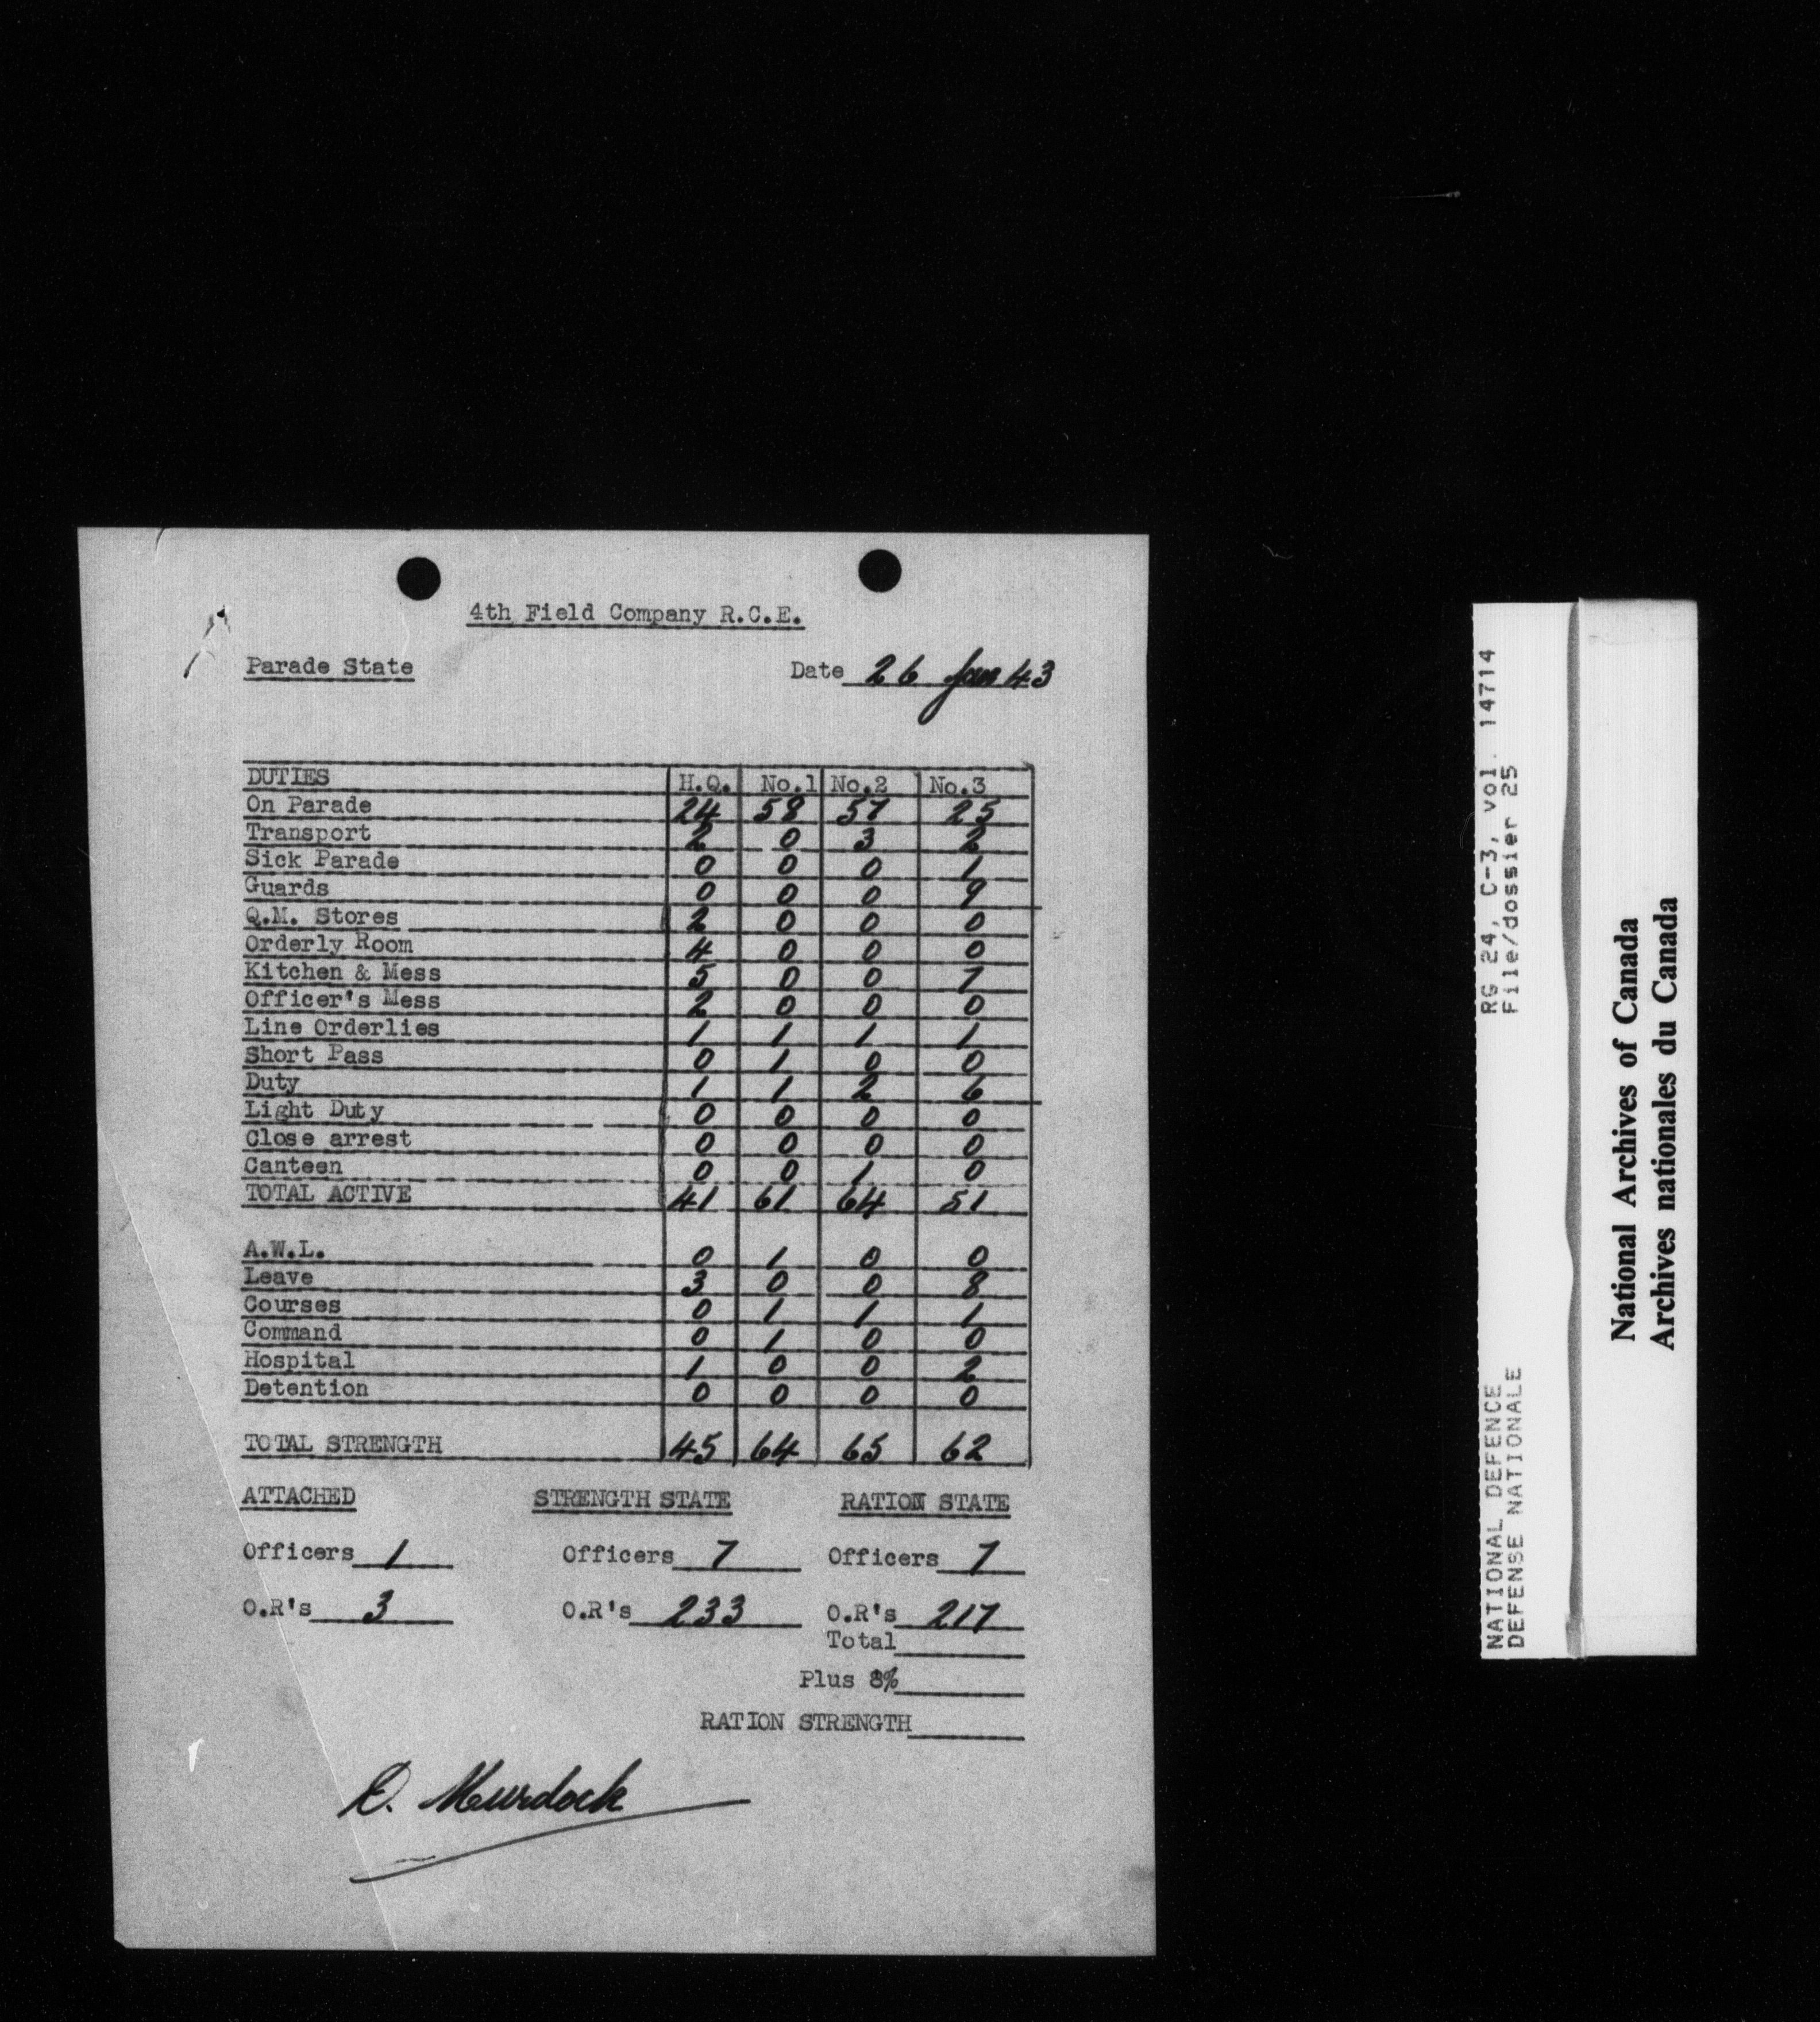 4th Field Company R.C.E.
Parade State Date 26 Jan 43
DUTIES H.Q. No.1 No.2 No.3
On Parade 24 58 57 25
Transport 2 0 3 2
Sick Parade 0 0 0 1
Guards 0 0 0 9
Q.M. Stores 2 0 0 0
Orderly Room 4 0 0 0
Kitchen & Mess 5 0 0 7
Officer's Mess 2 0 0 0
Line Orderlies 1 1 1 1
Short Pass 0 1 0 0
Duty 1 1 2 6
Light Duty 0 0 0 0
Close arrest 0 0 0 0
Canteen 0 0 1 0
TOTAL ACTIVE 41 61 64 51
A.W.L. 0 1 0 0
Leave 3 0 0 8
Courses 0 1 1 1
Command 0 1 0 0
Hospital 1 0 0 2
Detention 0 0 0 0
TOTAL STRENGTH 45 64 65 62
ATTACHED STRENGTH STATE RATION STATE
Officers 1 Officers 7 Officers 7
O.R's 3 O.R's 233 O.R's 217
Total
Plus 8%
RATION STRENGTH
Murdock
NATIONAL DEFENCE RG 24, C-3, vol. 14714
DEFENSE NATIONALE File/dossier 25
National Archives of Canada
Archives nationales du Canada